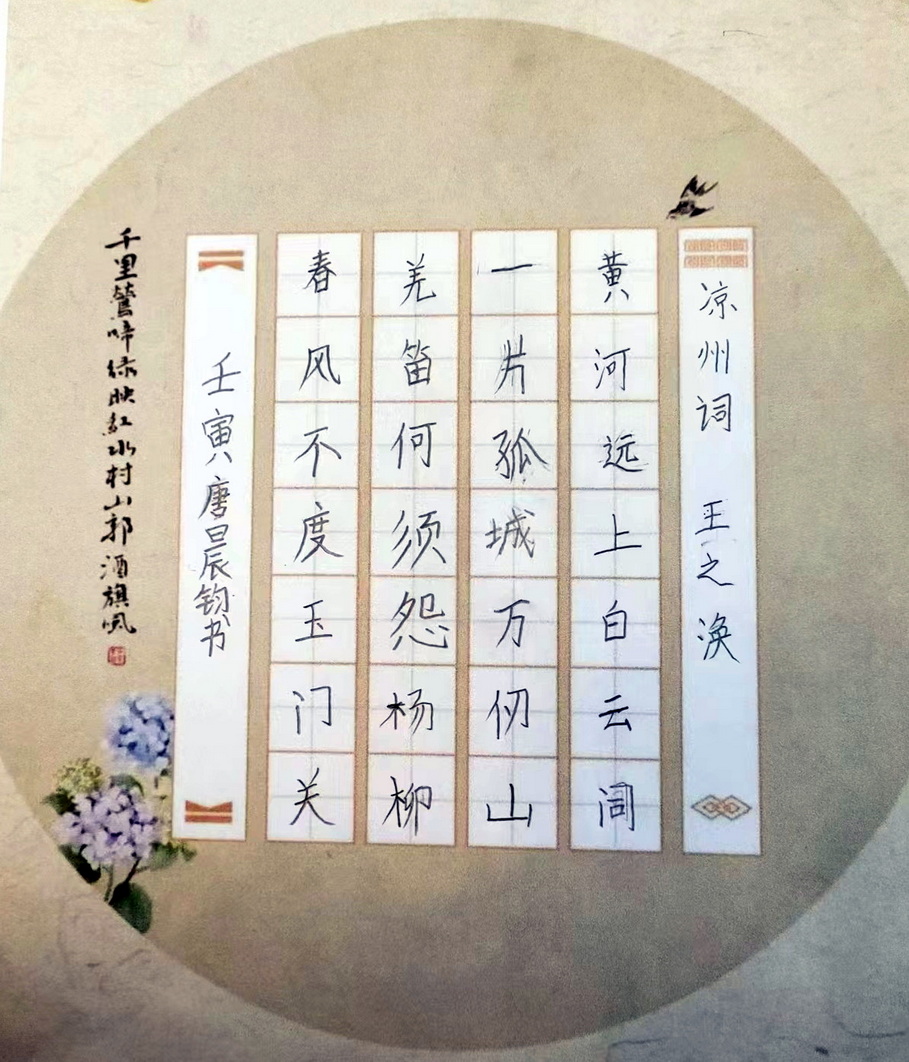 凉州词 王之涣
黄河远上白云间
一片孤城万仞山
羌笛何须怨杨柳
春风不度玉门关
壬寅唐晨钧书
千里鶯啼绿映紅水村山郭酒旗風